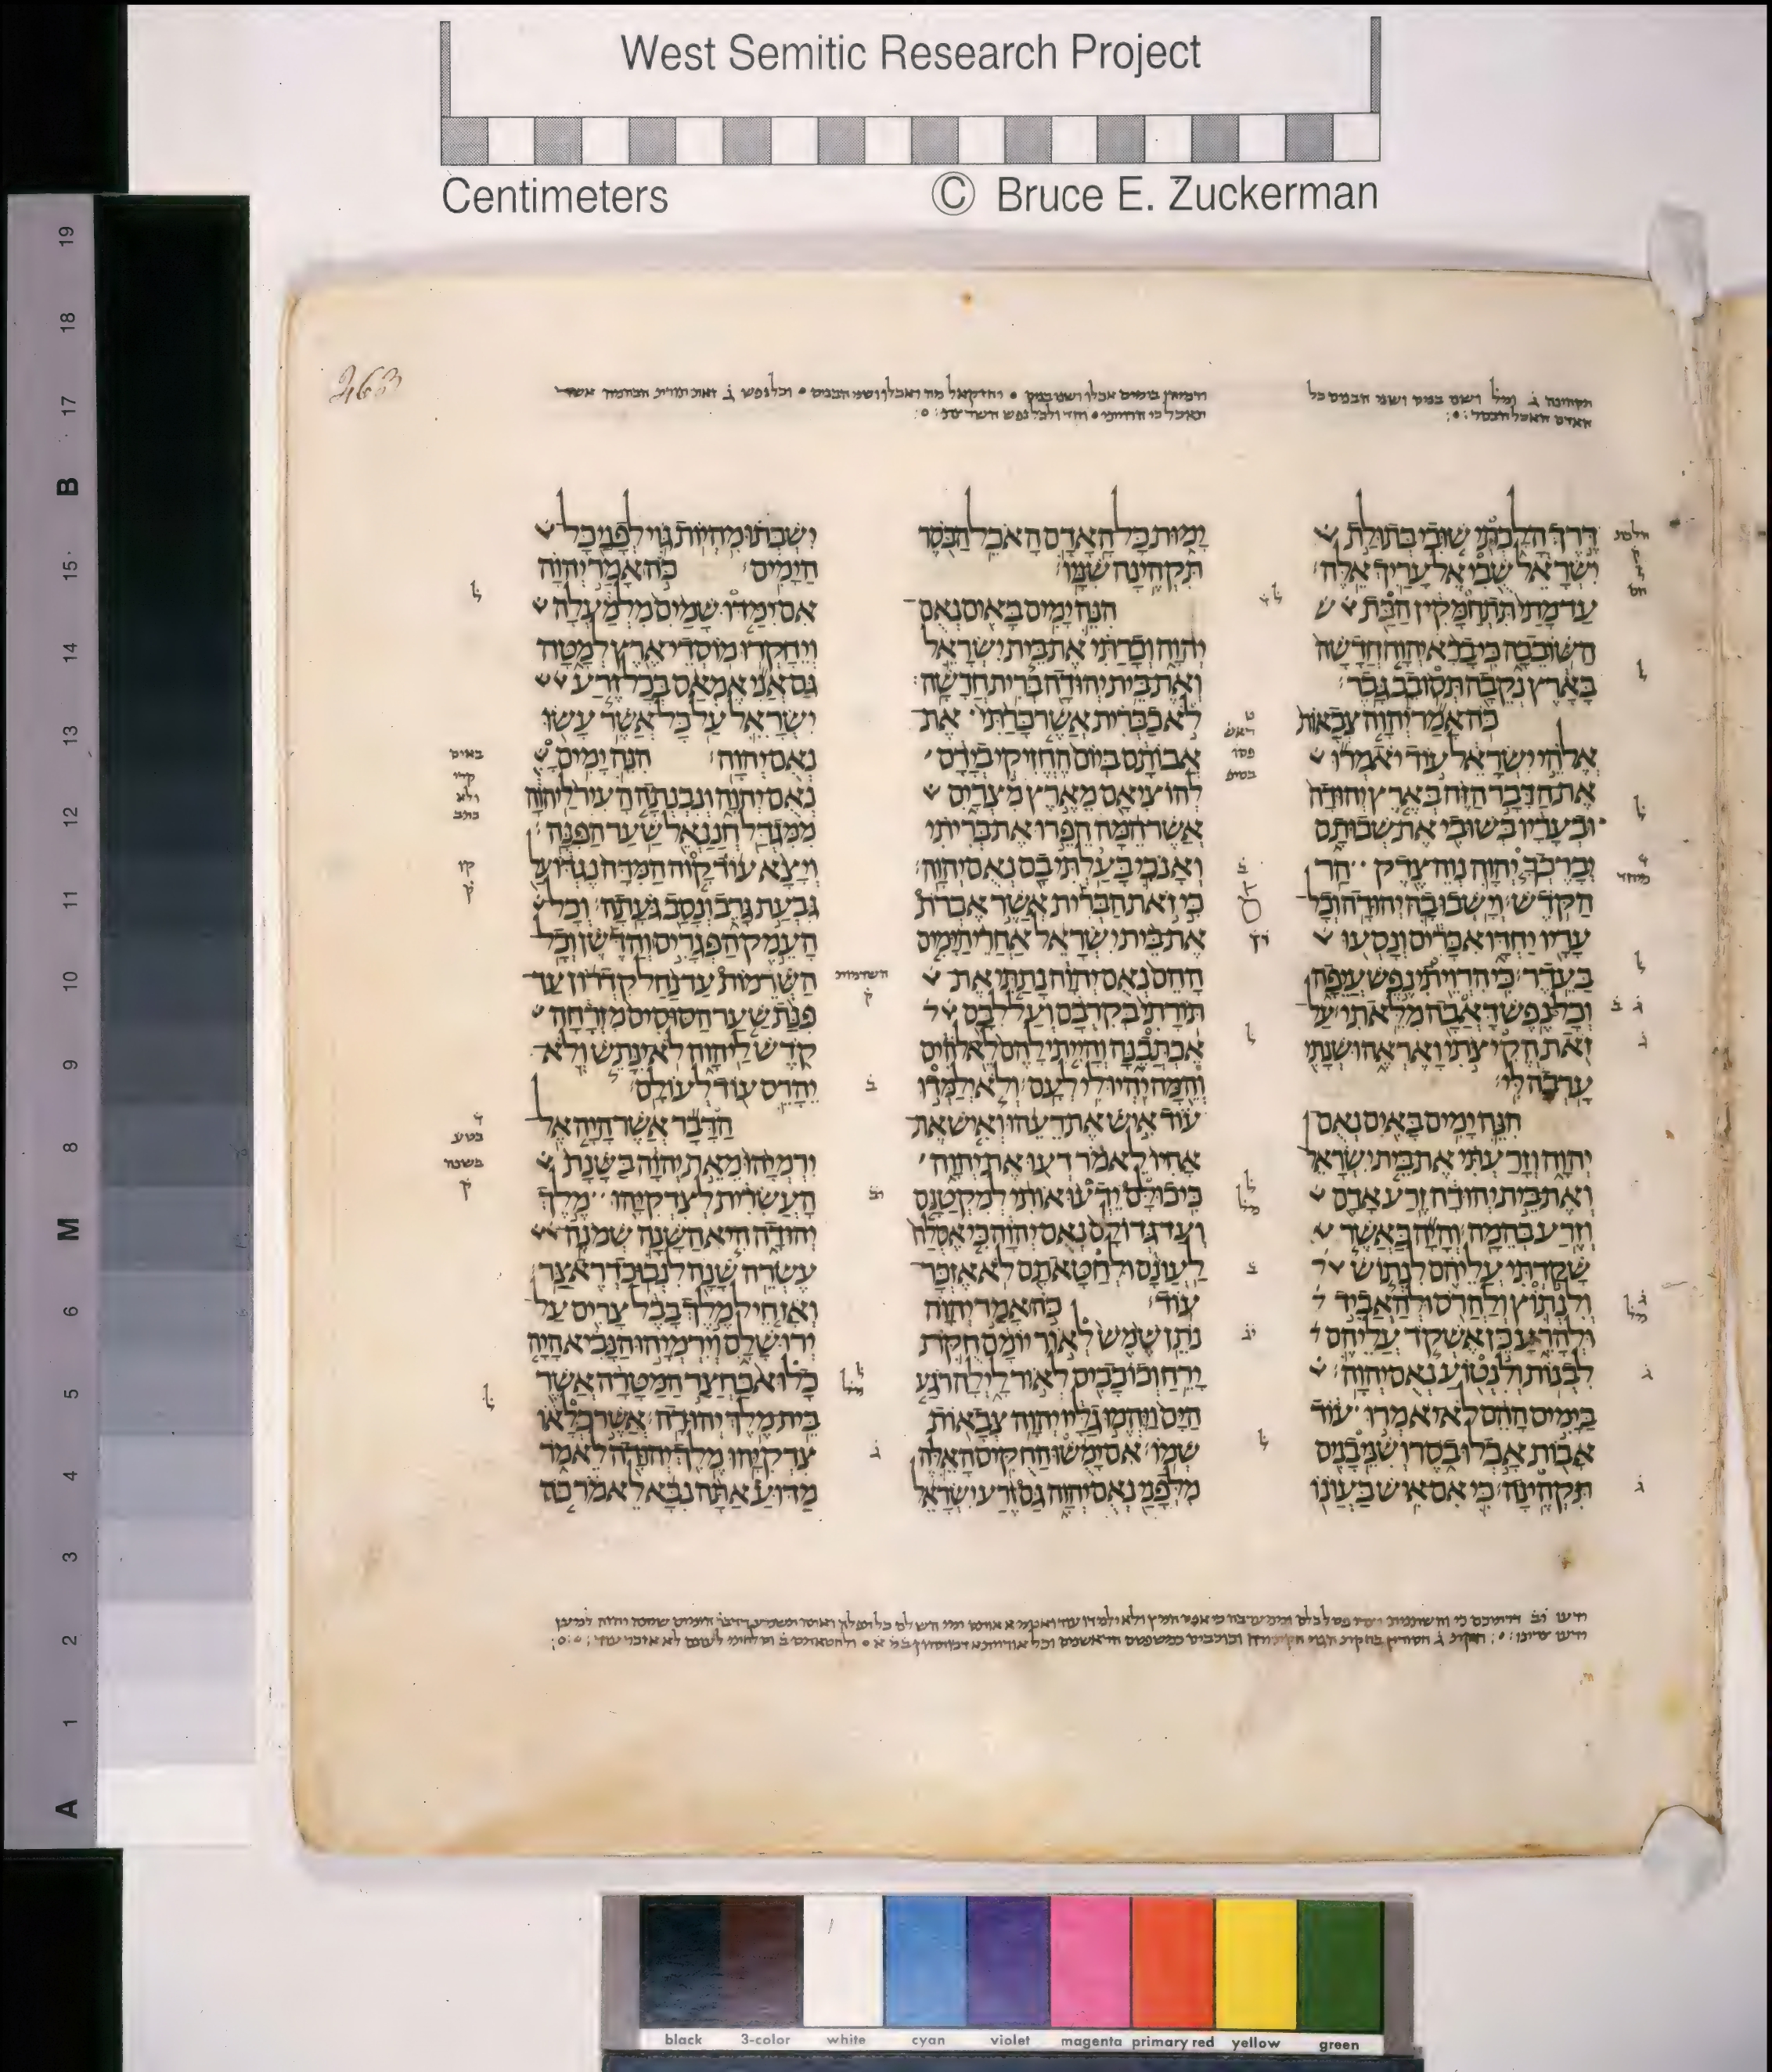 West Semitic Research Project
Centimeters © Bruce E. Zuckerman
463
דרך הלכתי שובי בתולת
ישראל שבי אל עריך אלה׃
עד מתי תתחמקין הבת
השובבה כי ברא יהוה חדשה
בארץ נקבה תסובב גבר׃
כה אמר יהוה צבאות
אלהי ישראל עוד יאמרו
את הדבר הזה בארץ יהודה
ובעריו בשובי את שבותם
יברכך יהוה נוה צדק הר
הקדש׃ וישבו בה יהודה וכל
עריו יחדו אכרים ונסעו
בעדר׃ כי הרויתי נפש עיפה
וכל נפש דאבה מלאתי׃ על
זאת הקיצתי ואראה ושנתי
ערבה לי׃
הנה ימים באים נאם
יהוה וזרעתי את בית ישראל
ואת בית יהודה זרע אדם
וזרע בהמה׃ והיה כאשר
שקדתי עליהם לנתוש
ולנתוץ ולהרס ולהאביד
ולהרע כן אשקד עליהם
לבנות ולנטוע נאם יהוה׃
בימים ההם לא יאמרו עוד
אבות אכלו בסר ושני בנים
תקהינה׃ כי אם איש בעונו
ימות כל האדם האכל הבסר
תקהינה שניו׃
הנה ימים באים נאם
יהוה וכרתי את בית ישראל
ואת בית יהודה ברית חדשה׃
לא כברית אשר כרתי את
אבותם ביום החזיקי בידם
להוציאם מארץ מצרים
אשר המה הפרו את בריתי
ואנכי בעלתי בם נאם יהוה׃
כי זאת הברית אשר אכרת
את בית ישראל אחרי הימים
ההם נאם יהוה נתתי את
תורתי בקרבם ועל לבם
אכתבנה והייתי להם לאלהים
והמה יהיו לי לעם׃ ולא ילמדו
עוד איש את רעהו ואיש את
אחיו לאמר דעו את יהוה
כי כולם ידעו אותי למקטנם
ועד גדולם נאם יהוה כי אסלח
לעונם ולחטאתם לא אזכר
עוד׃ כה אמר יהוה
נתן שמש לאור יומם חקת
ירח וכוכבים לאור לילה רגע
הים ויהמו גליו יהוה צבאות
שמו׃ אם ימשו החקים האלה
מלפני נאם יהוה גם זרע ישראל
ישבתו מהיות גוי לפני כל
הימים׃ כה אמר יהוה
אם ימדו שמים מלמעלה
ויחקרו מוסדי ארץ למטה
גם אני אמאס בכל זרע
ישראל על כל אשר עשו
נאם יהוה׃ הנה ימים
נאם יהוה ונבנתה העיר ליהוה
ממגדל חננאל שער הפנה׃
ויצא עוד קוה המדה נגדו על
גבעת גרב ונסב געתה׃ וכל
העמק הפגרים והדשן וכל
השרמות עד נחל קדרון עד
פנת שער הסוסים מזרחה
קדש ליהוה לא ינתש ולא
יהרס עוד לעולם׃
הדבר אשר היה אל
ירמיהו מאת יהוה בשנת
העשרית לצדקיהו מלך
יהודה היא השנה שמנה
עשרה שנה לנבוכדראצר׃
ואז חיל מלך בבל צרים על
ירושלם וירמיהו הנביא היה
כלוא בחצר המטרה אשר
בית מלך יהודה׃ אשר כלאו
צדקיהו מלך יהודה לאמר
מדוע אתה נבא לאמר כה
19 18 17 B 16 15 14 13 12 11 10 9 8 M 7 6 5 4 3 2 1 A
black 3-color white cyan violet magenta primary red yellow green